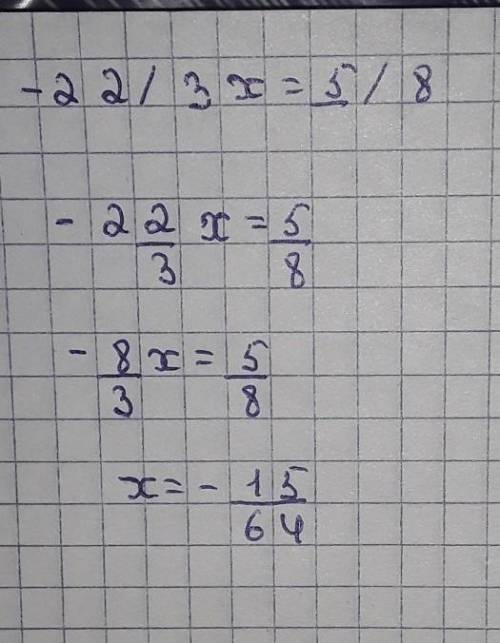 -2 2/3 x = 5/8
-2 2/3 x = 5/8
-8/3 x = 5/8
x = -15/64